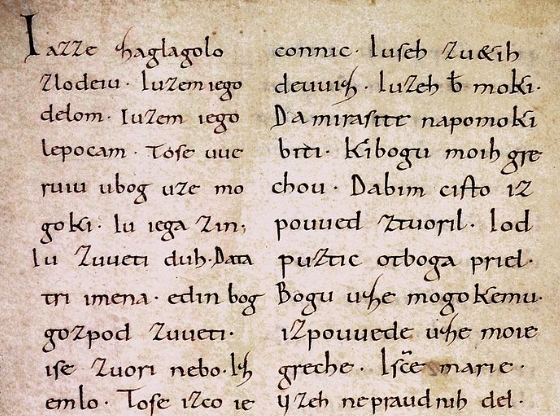 Iazze zaglagolo
zlodeiu. Iuzem iego
delom. Iuzem iego
lepocam. Tose uue
ruiu ubog uze mo
goki. Iu iega zin,
Iu zuueti duh. Data
tri imena. edin bog
gozpod zuueti.
ise zuori nebo. Iz
emlo. Tose izco ie
connic. Iuseh zu&ih
deuuiz. Iuzeh ƀ moki.
Da mirasite napomoki
biti. Kibogu moih gre
chou. Dabim cisto iz
pouued ztuoril. Iod
puztic otboga priel.
Bogu uze mogokemu.
izpouuede uze moie
greche. Isc̄e marie.
yzeh nepraudnih del.